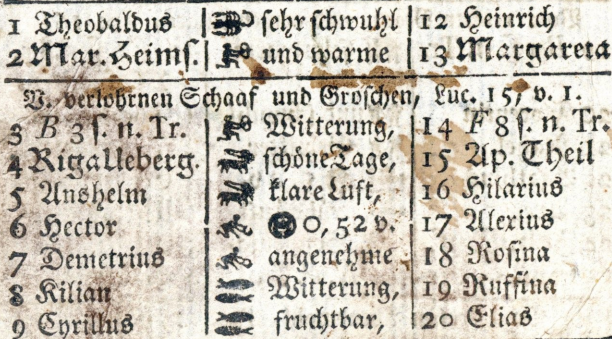 1 Theobaldus sehr schwuhl 12 Heinrich
2 Mar. Heims. und warme 13 Margareta
V. verlohrnen Schaaf und Groschen, Luc. 15, v. 1.
3 B 3 s. n. Tr. Witterung, 14 F 8 s. n. Tr.
4 Riga Ueberg. schöne Tage, 15 Ap. Theil
5 Anshelm klare Luft, 16 Hilarius
6 Hector 0, 52 v. 17 Alexius
7 Demetrius angenehme 18 Rosina
8 Kilian Witterung, 19 Ruffina
9 Cyrillus fruchtbar, 20 Elias